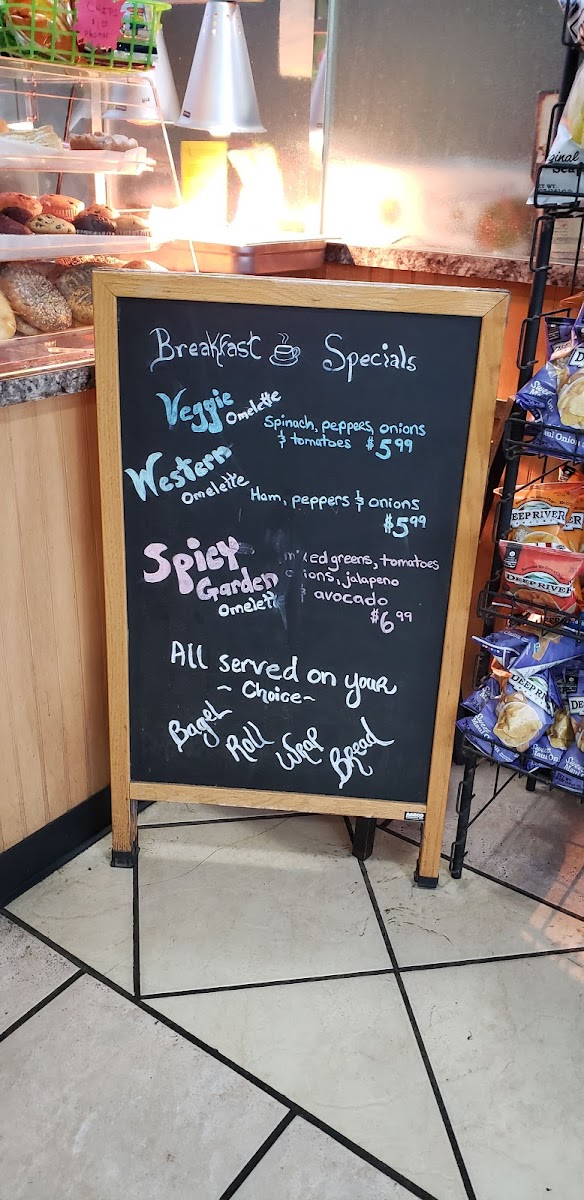 Breakfast Specials
Veggie Omelette
Spinach, peppers, onions
& tomatoes $5.99
Western Omelette
Ham, peppers & onions
$5.99
Spicy Garden Omelette
mixed greens, tomatoes
onions, jalapeno
& avocado
$6.99
All served on your
~ Choice ~
Bagel Roll Wrap Bread
DEEP RIVER
DEEP RIVER